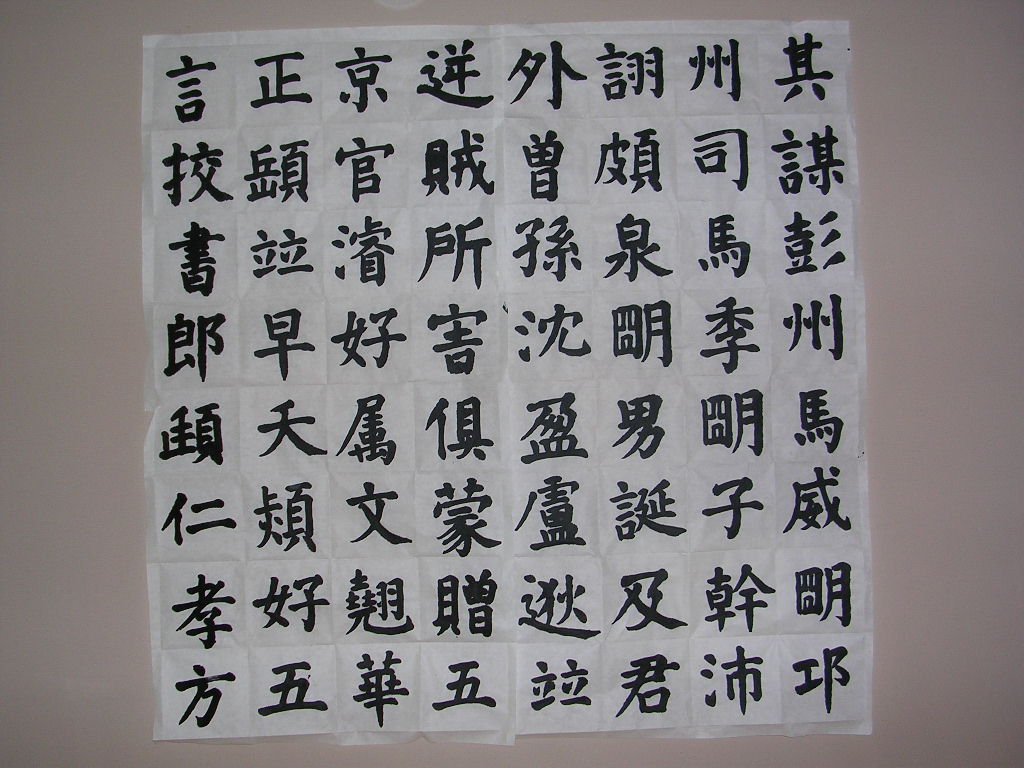 其謀彭州馬威朙邛
州司馬季朙子幹沛
詡頗泉朙男誕及君
外曾孫沈盈盧逖竝
逆賊所害俱蒙贈五
京官濬好属文翹華
正頤竝早夭熲好五
言挍書郎頲仁孝方